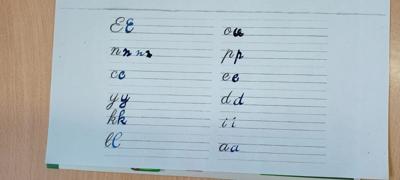 Ee
nnnn
cc
yy
kk
ll
ou
pp
ee
dd
ii
aa